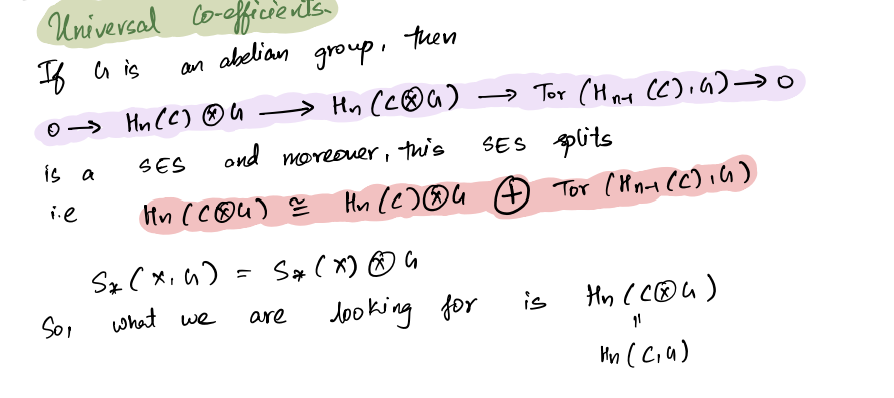 Universal Co-efficients.
If G is an abelian group, then
0 → Hn(C) ⊗ G → Hn(C⊗G) → Tor (Hn-1 (C), G) → 0
is a SES and moreover, this SES splits
i.e Hn(C⊗G) ≅ Hn(C)⊗G ⊕ Tor (Hn-1(C), G)
S*(X, G) = S*(X) ⊗ G
So, what we are looking for is Hn(C⊗G)
=
Hn(C, G)